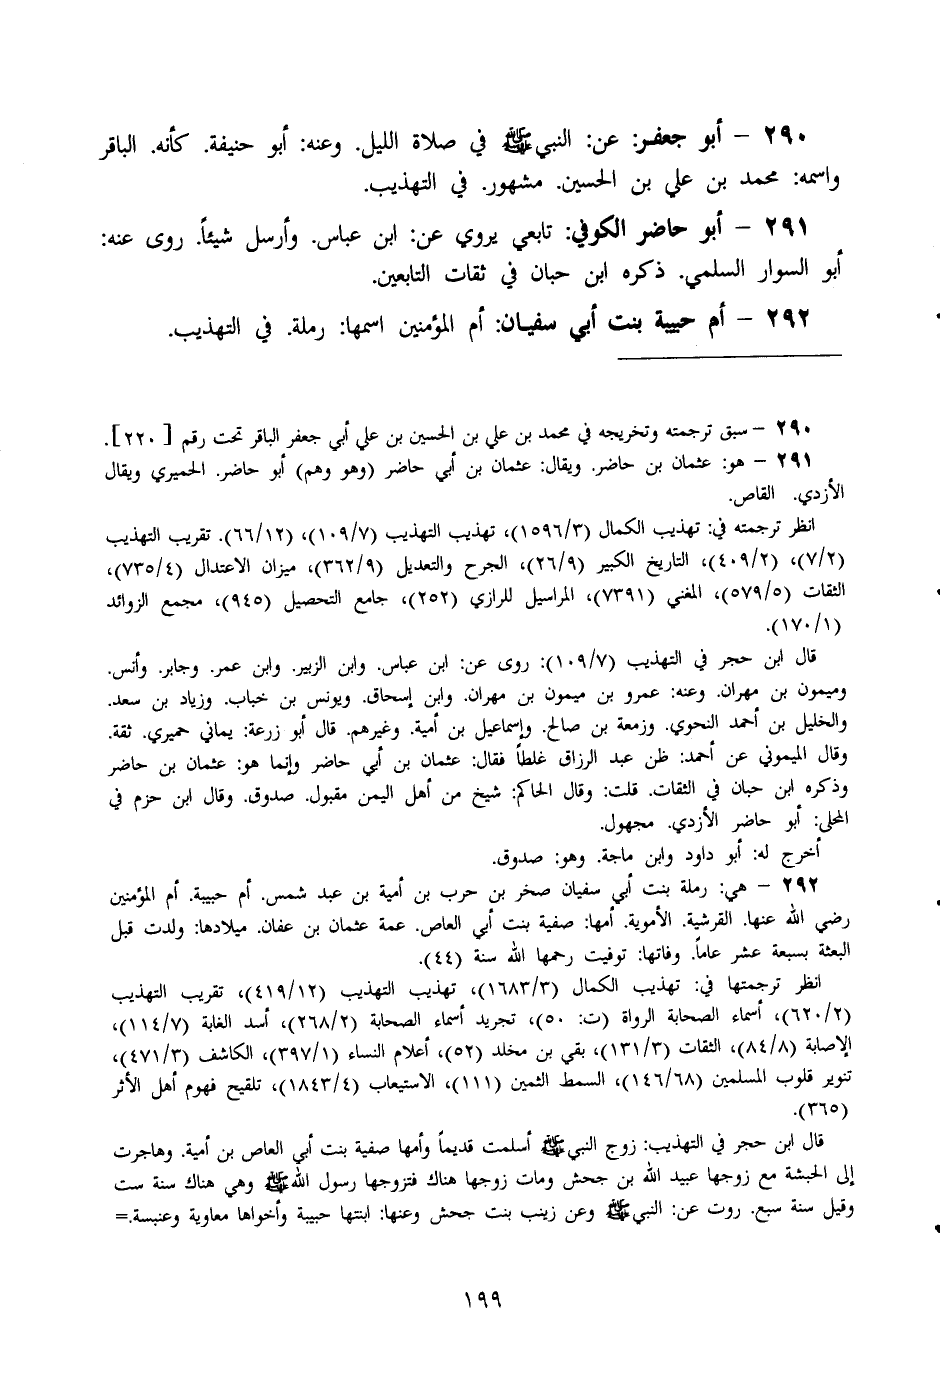 ٢٩٠ – أبو جعفر: عن: النبي ﷺ في صلاة الليل. وعنه: أبو حنيفة. كأنه. الباقر
واسمه: محمد بن علي بن الحسين. مشهور. في التهذيب.
٢٩١ – أبو حاضر الكوفي: تابعي يروي عن: ابن عباس. وأرسل شيئاً. روى عنه:
أبو السوار السلمي. ذكره ابن حبان في ثقات التابعين.
٢٩٢ – أم حبيبة بنت أبي سفيان: أم المؤمنين اسمها: رملة. في التهذيب.
٢٩٠ – سبق ترجمته وتخريجه في محمد بن علي بن الحسين بن علي أبي جعفر الباقر تحت رقم [٢٢٠].
٢٩١ – هو: عثمان بن حاضر. ويقال: عثمان بن أبي حاضر (وهو وهم) أبو حاضر. الحميري ويقال
الأزدي. القاص.
انظر ترجمته في: تهذيب الكمال (١٥٩٦/٣)، تهذيب التهذيب (١٠٩/٧)، (٦٦/١٢). تقريب التهذيب
(٧/٢)، (٤٠٩/٢)، التاريخ الكبير (٢٦/٩)، الجرح والتعديل (٣٦٢/٩)، ميزان الاعتدال (٧٣٥/٤)،
الثقات (٥٧٩/٥)، المغني (٧٣٩١)، المراسيل للرازي (٢٥٢)، جامع التحصيل (٩٤٥)، مجمع الزوائد
(١٧٠/١).
قال ابن حجر في التهذيب (١٠٩/٧): روى عن: ابن عباس. وابن الزبير. وابن عمر. وجابر. وأنس.
وميمون بن مهران. وعنه: عمرو بن ميمون بن مهران. وابن إسحاق. ويونس بن خباب. وزياد بن سعد.
والخليل بن أحمد النحوي. وزمعة بن صالح. وإسماعيل بن أمية. وغيرهم. قال أبو زرعة: يماني حميري. ثقة.
وقال الميموني عن أحمد: ظن عبد الرزاق غلطاً فقال: عثمان بن أبي حاضر وإنما هو: عثمان بن حاضر
وذكره ابن حبان في الثقات. قلت: وقال الحاكم: شيخ من أهل اليمن مقبول. صدوق. وقال ابن حزم في
المحلى: أبو حاضر الأزدي. مجهول.
أخرج له: أبو داود وابن ماجة. وهو: صدوق.
٢٩٢ – هي: رملة بنت أبي سفيان صخر بن حرب بن أمية بن عبد شمس. أم حبيبة. أم المؤمنين
رضي الله عنها. القرشية. الأموية. أمها: صفية بنت أبي العاص. عمة عثمان بن عفان. ميلادها: ولدت قبل
البعثة بسبعة عشر عاماً. وفاتها: توفيت رحمها الله سنة (٤٤).
انظر ترجمتها في: تهذيب الكمال (١٦٨٣/٣)، تهذيب التهذيب (٤١٩/١٢)، تقريب التهذيب
(٦٢٠/٢)، أسماء الصحابة الرواة (ت: ٥٠)، تجريد أسماء الصحابة (٢٦٨/٢)، أسد الغابة (١١٤/٧)،
الإصابة (٨٤/٨)، الثقات (١٣١/٣)، بقي بن مخلد (٥٢)، أعلام النساء (٣٩٧/١)، الكاشف (٤٧١/٣)،
تنوير قلوب المسلمين (١٤٦/٦٨)، السمط الثمين (١١١)، الاستيعاب (١٨٤٣/٤)، تلقيح فهوم أهل الأثر
(٣٦٥).
قال ابن حجر في التهذيب: زوج النبي ﷺ أسلمت قديماً وأمها صفية بنت أبي العاص بن أمية. وهاجرت
إلى الحبشة مع زوجها عبيد الله بن جحش ومات زوجها هناك فتزوجها رسول الله ﷺ وهي هناك سنة ست
وقيل سنة سبع. روت عن: النبي ﷺ وعن زينب بنت جحش وعنها: ابنتها حبيبة وأخواها معاوية وعنبسة.=
١٩٩